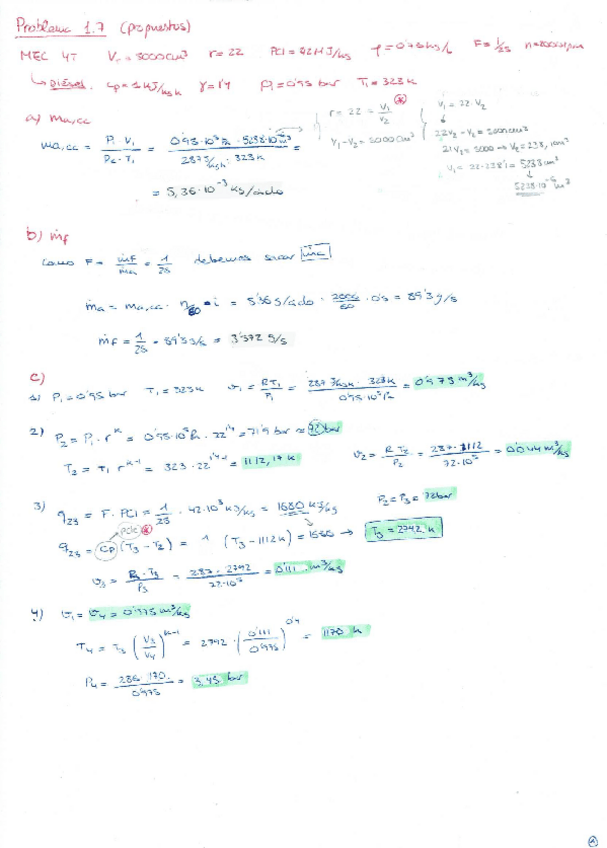 Problema 1.7 (propuestos)
MEC 4T V_T = 3000cm³ r = 22 PCI = 42MJ/kg F = 1/25
↳ Diésel. cp = 1 kJ/kgK γ = 1'4 P₁ = 0'95 bar T₁ = 323K
a) ma,cc
r = 22 = V₁/V₂ *
V₁ - V₂ = 5000cm³
V₁ = 22·V₂
↓
22V₂ - V₂ = 5000cm³
21V₂ = 5000 → V₂ = 238,1cm³
V₁ = 22·238'1 = 5238 cm³
↓
5238·10⁻⁶ m³
ma,cc = P₁·V₁ / Ra·T₁ = 0'95·10⁵Pa · 5238·10⁻⁶m³ / 287 J/kgK · 323K =
= 5,36·10⁻³ kg/ciclo
b) ṁf
como F = ṁf/ṁa = 1/25 debemos sacar ṁa
ṁa = ma,cc · n/60 · i = 5'36 g/ciclo · 2000/60 · 0'5 = 89'3 g/s
ṁf = 1/25 · 89'3 g/s = 3'572 g/s
c)
1) P₁ = 0'95 bar T₁ = 323K v₁ = RT₁/P₁ = 287 J/kgK · 323K / 0'95·10⁵Pa = 0'975 m³/kg
2) P₂ = P₁·r^k = 0'95·10⁵Pa · 22^1'4 = 71'9 bar ≈ 72 bar
T₂ = T₁ r^k-1 = 323·22^1'4-1 = 1112,17K
v₂ = R T₂/P₂ = 287·1112/72·10⁵ = 0'044 m³/kg
3) q₂₃ = F·PCI = 1/25 · 42·10³ kJ/kg = 1680 kJ/kg
P₂ = P₃ = 72bar
pcte *
q₂₃ = Cp (T₃ - T₂) = 1 (T₃ - 1112K) = 1680 → T₃ = 2792 K
v₃ = R·T₃/P₃ = 287·2792/72·10⁵ = 0'111 m³/kg
4) v₁ = v₄ = 0'975 m³/kg
T₄ = T₃ (V₃/V₄)^k-1 = 2792·(0'111/0'975)^0'4 = 1170 K
P₄ = 286·170/0'975 = 3,45 bar